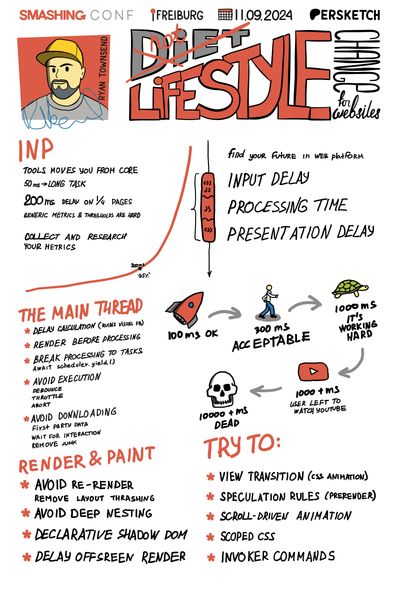 SMASHING CONF
FREIBURG
11.09.2024
PERSKETCH
RYAN TOWNSEND
not
DiEt
LiFESTYLE
CHANGE
for
websites
INP
TOOLS MOVES YOU FROM CORE
50ms → LONG TASK
200ms DELAY ON 1/4 PAGES
GENERIC METRICS & THRESHOLDS ARE HARD
COLLECT AND RESEARCH
YOUR METRICS
find your future in WEB platform
CSS
JS
JS
CSS
INPUT DELAY
PROCESSING TIME
PRESENTATION DELAY
THE MAIN THREAD
* DELAY CALCULATION (RUINS VISUAL FB)
* RENDER BEFORE PROCESSING
* BREAK PROCESSING TO TASKS
AWAIT scheduler.yield()
* AVOID EXECUTION
DEBOUNCE
THROTTLE
ABORT
* AVOID DOWNLOADING
First PARTY DATA
WAIT FOR INTERACTION
REMOVE JUNK
100 ms OK
300 ms
ACCEPTABLE
1000 ms
IT'S
WORKING
HARD
1000 + ms
USER LEFT TO
WATCH YOUTUBE
10000 + ms
DEAD
RENDER & PAINT
* AVOID RE-RENDER
REMOVE LAYOUT THRASHING
* AVOID DEEP NESTING
* DECLARATIVE SHADOW DOM
* DELAY OFFSCREEN RENDER
TRY TO:
* VIEW TRANSITION (CSS ANIMATION)
* SPECULATION RULES (PRERENDER)
* SCROLL-DRIVEN ANIMATION
* SCOPED CSS
* INVOKER COMMANDS